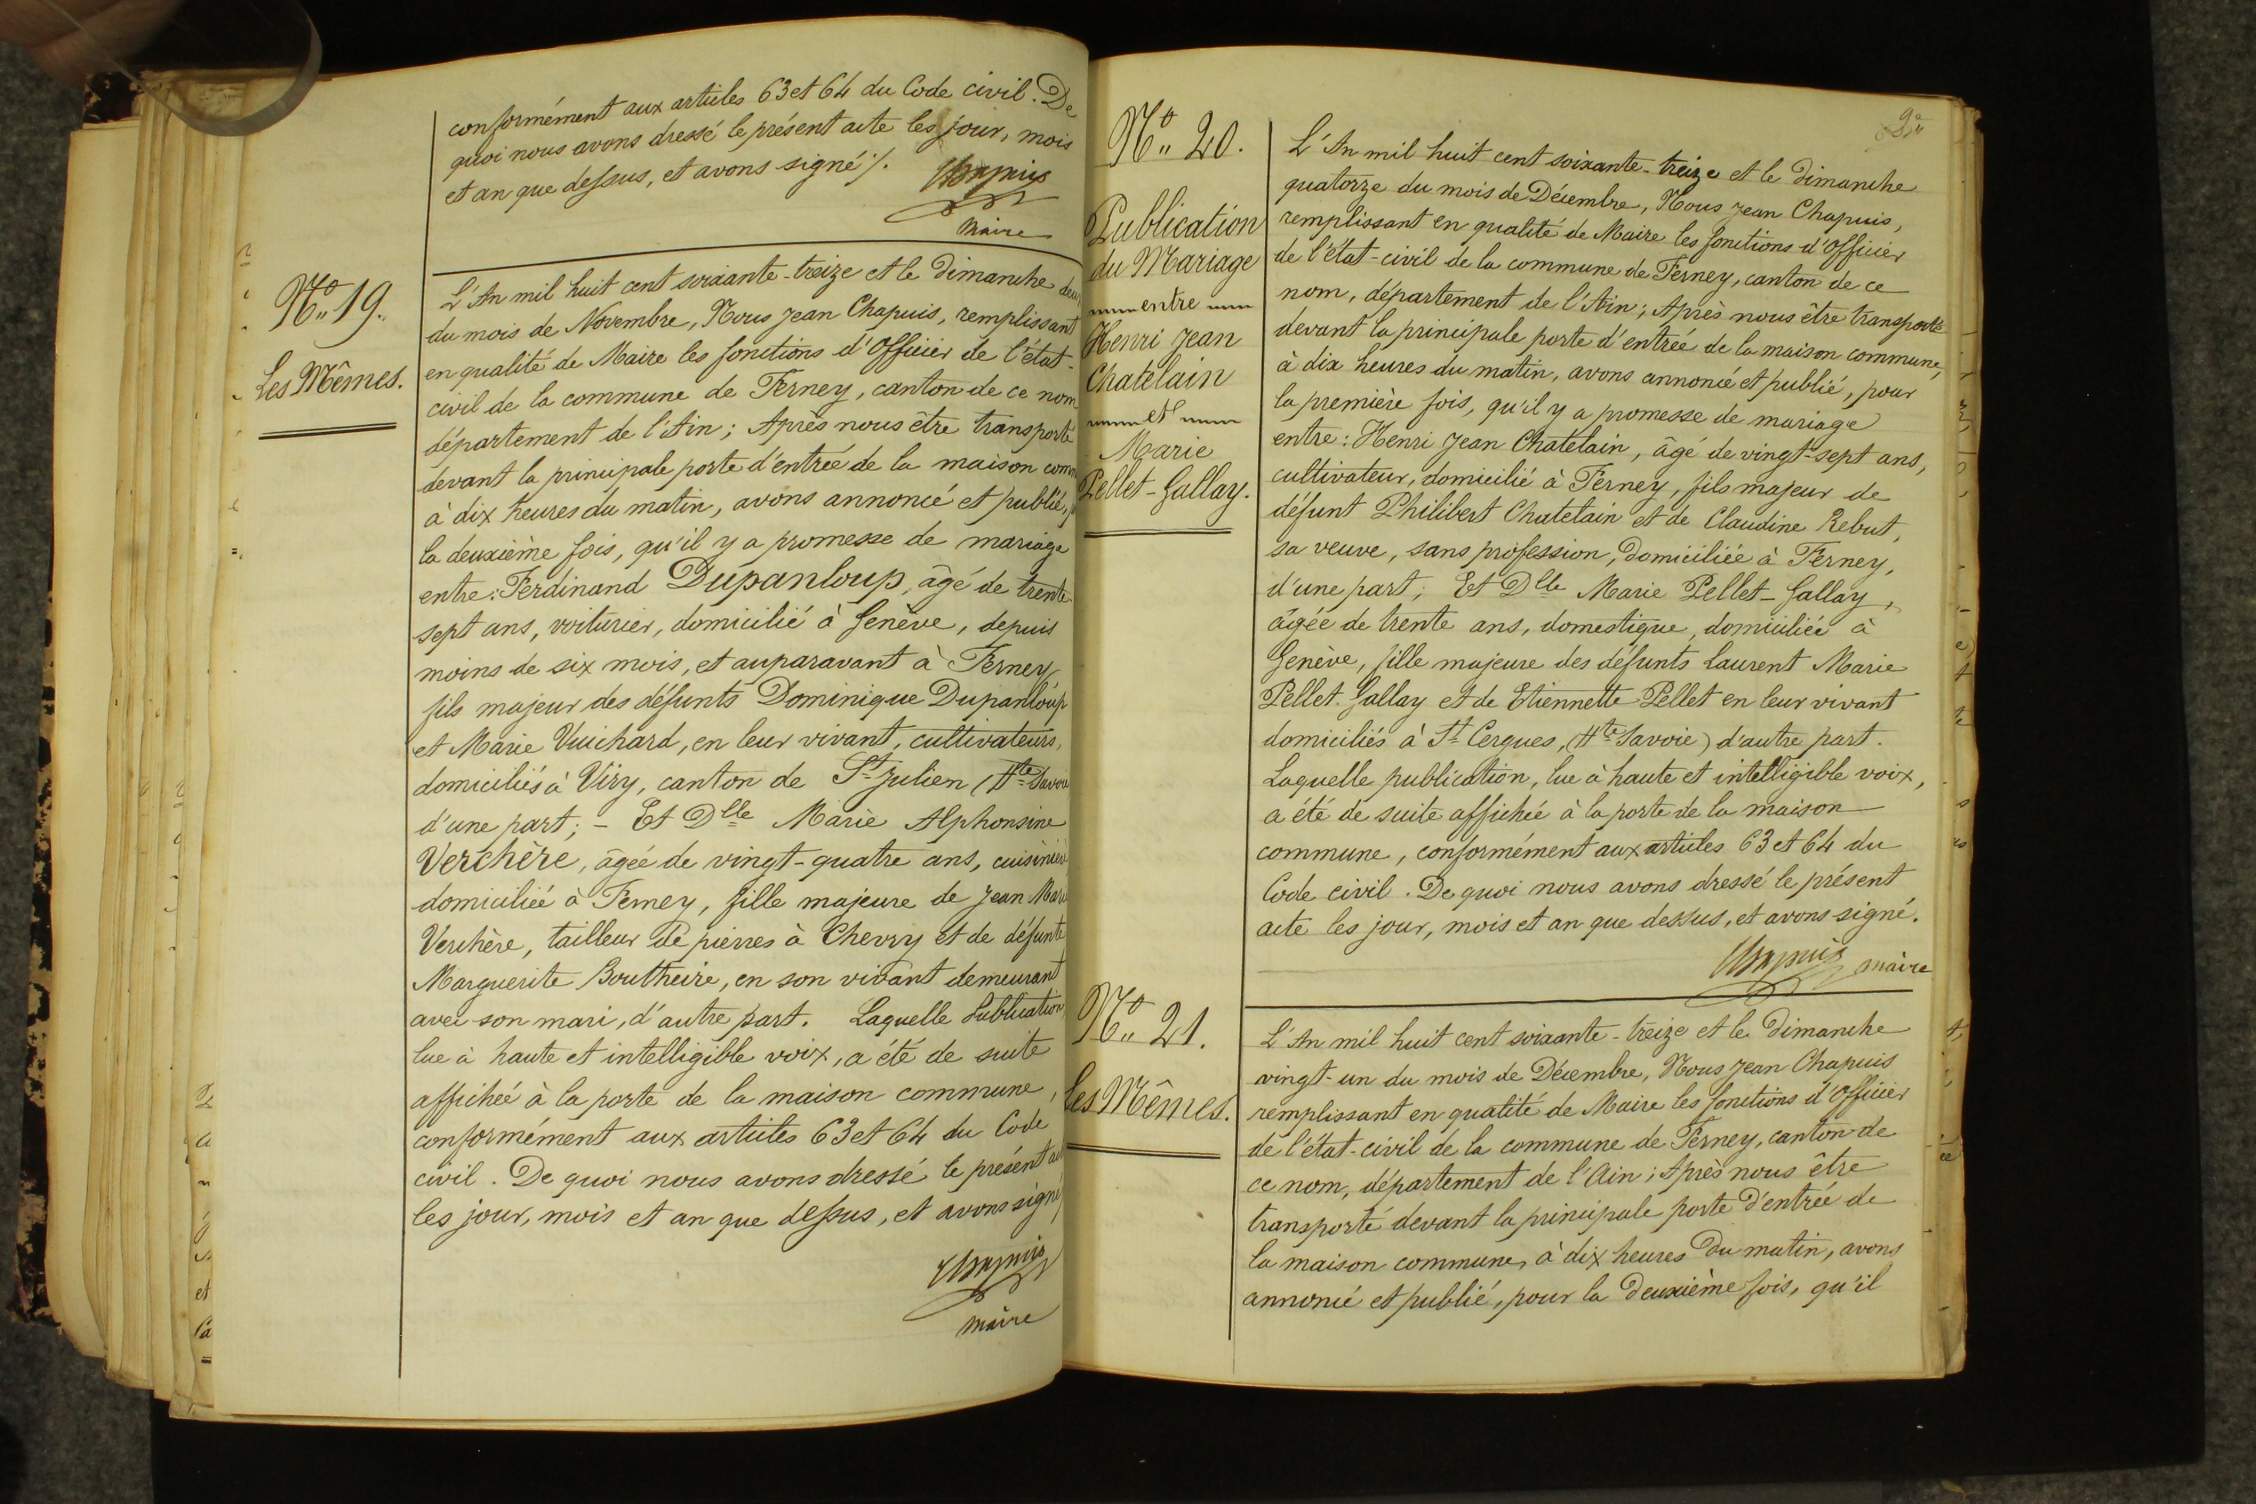 conformément aux articles 63 et 64 du Code civil. De
quoi nous avons dressé le présent acte les jour, mois
et an que dessus, et avons signé /.
Chapuis
Maire
No. 19.
Les Mêmes.
L'An mil huit cent soixante-treize et le dimanche deux
du mois de Novembre, Nous Jean Chapuis, remplissant
en qualité de Maire les fonctions d'Officier de l'état-
civil de la commune de Ferney, canton de ce nom
département de l'Ain; Après nous être transporté
devant la principale porte d'entrée de la maison comm
à dix heures du matin, avons annoncé et publié, p
la deuxième fois, qu'il y a promesse de mariage
entre: Ferdinand Dupanloup, âgé de trente-
sept ans, voiturier, domicilié à Genève, depuis
moins de six mois, et auparavant à Ferney,
fils majeur des défunts Dominique Dupanloup
et Marie Vuichard, en leur vivant, cultivateurs,
domiciliés à Viry, canton de St Julien (Hte Savoie
d'une part; - Et Dlle Marie Alphonsine
Verchère, âgée de vingt-quatre ans, cuisinière
domiciliée à Ferney, fille majeure de Jean Marie
Verchère, tailleur de pierres à Chevry et de défunte
Marguerite Boutheire, en son vivant demeurant
avec son mari, d'autre part. Laquelle Publication
lue à haute et intelligible voix, a été de suite
affichée à la porte de la maison commune,
conformément aux articles 63 et 64 du Code
civil. De quoi nous avons dressé le présent ac
les jour, mois et an que dessus, et avons signé
Chapuis
maire
No. 20.
Publication
du Mariage
entre
Henri Jean
Chatelain
et
Marie
Pellet-Gallay.
L'An mil huit cent soixante-treize et le dimanche
quatorze du mois de Décembre, Nous Jean Chapuis,
remplissant en qualité de Maire les fonctions d'Officier
de l'état-civil de la commune de Ferney, canton de ce
nom, département de l'Ain; Après nous être transporté
devant la principale porte d'entrée de la maison commune,
à dix heures du matin, avons annoncé et publié, pour
la première fois, qu'il y a promesse de mariage
entre: Henri Jean Chatelain, âgé de vingt-sept ans,
cultivateur, domicilié à Ferney, fils majeur de
défunt Philibert Chatelain et de Claudine Rebut,
sa veuve, sans profession, domiciliée à Ferney,
d'une part; Et Dlle Marie Pellet-Gallay,
âgée de trente ans, domestique, domiciliée à
Genève, fille majeure des défunts Laurent Marie
Pellet-Gallay et de Etiennette Pellet en leur vivant
domiciliés à St Cergues, (Hte Savoie) d'autre part.
Laquelle publication, lue à haute et intelligible voix,
a été de suite affichée à la porte de la maison
commune, conformément aux articles 63 et 64 du
Code civil. De quoi nous avons dressé le présent
acte les jour, mois et an que dessus, et avons signé.
Chapuis maire
No. 21.
Les Mêmes.
L'An mil huit cent soixante-treize et le dimanche
vingt-un du mois de Décembre, Nous Jean Chapuis
remplissant en qualité de Maire les fonctions d'Officier
de l'état-civil de la commune de Ferney, canton de
ce nom, département de l'Ain; Après nous être
transporté devant la principale porte d'entrée de
la maison commune, à dix heures du matin, avons
annoncé et publié, pour la deuxième fois, qu'il